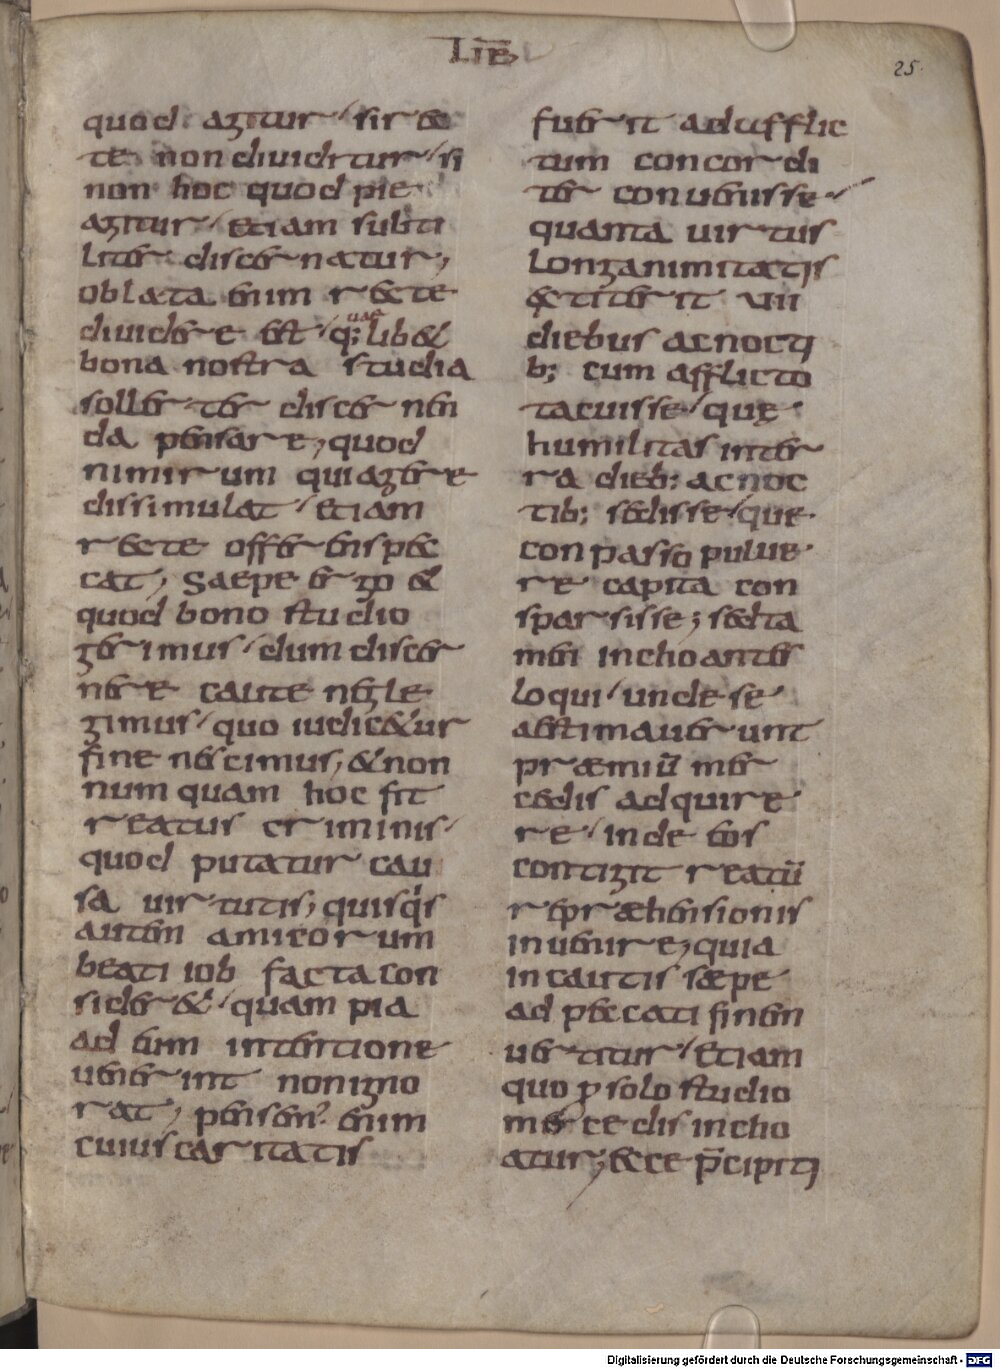 LIB̄
25.
quod agitur / si rec
te non diuiditur / si
non hoc quod pie
agitur / etiam subti
liter discernatur;
oblata enim recte
diuidere est / q; uae lib&
bona nostra studia
sollerter discernen
da pensare; quod
nimirum qui agere
dissimulat / etiam
recte offerens pec
cat; Saepe ergo &
quod bono studio
gerimus / dum discer
nere caute negle
gimus / quo iudic&ur
fine nescimus; & non
numquam hoc fit
reatus criminis /
quod putatur cau
sa uirtutis; quisq's
autem amicorum
beati iob facta con
sider& / quam pia
ad eum intentione
uenerint non igno
rat; pensem? enim
cuius caritatis
fuerit ad afflic
tum concordi
ter conuenisse /
quanta uirtus
longanimitatis
extiterit VII
diebus ac nocti
b; cum afflicto
tacuisse / quę
humilitas inter
ra dieb; ac noc
tib; sedisse / que
conpasso pulue
re capita con
sparsisse; sed ta
men inchoantes
loqui / unde se
aestimauerunt
præmiū mer
cedis adquire
re / inde eos
contigit reatū
repræhensionis
inuenire; quia
incautis sæpe
ad peccati finem
uertitur / etiam
quo p solo studio
mercedis incho
atur; ecce p̄cipiti
Digitalisierung gefördert durch die Deutsche Forschungsgemeinschaft - DFG